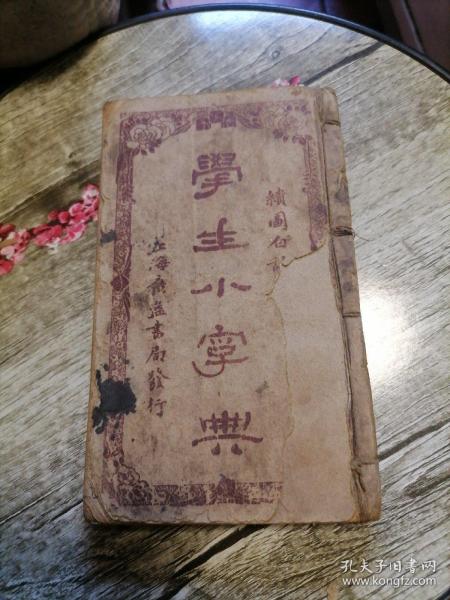 繪圖白話
學生小字典
上海廣益書局發行
孔夫子旧书网
www.kongfz.com